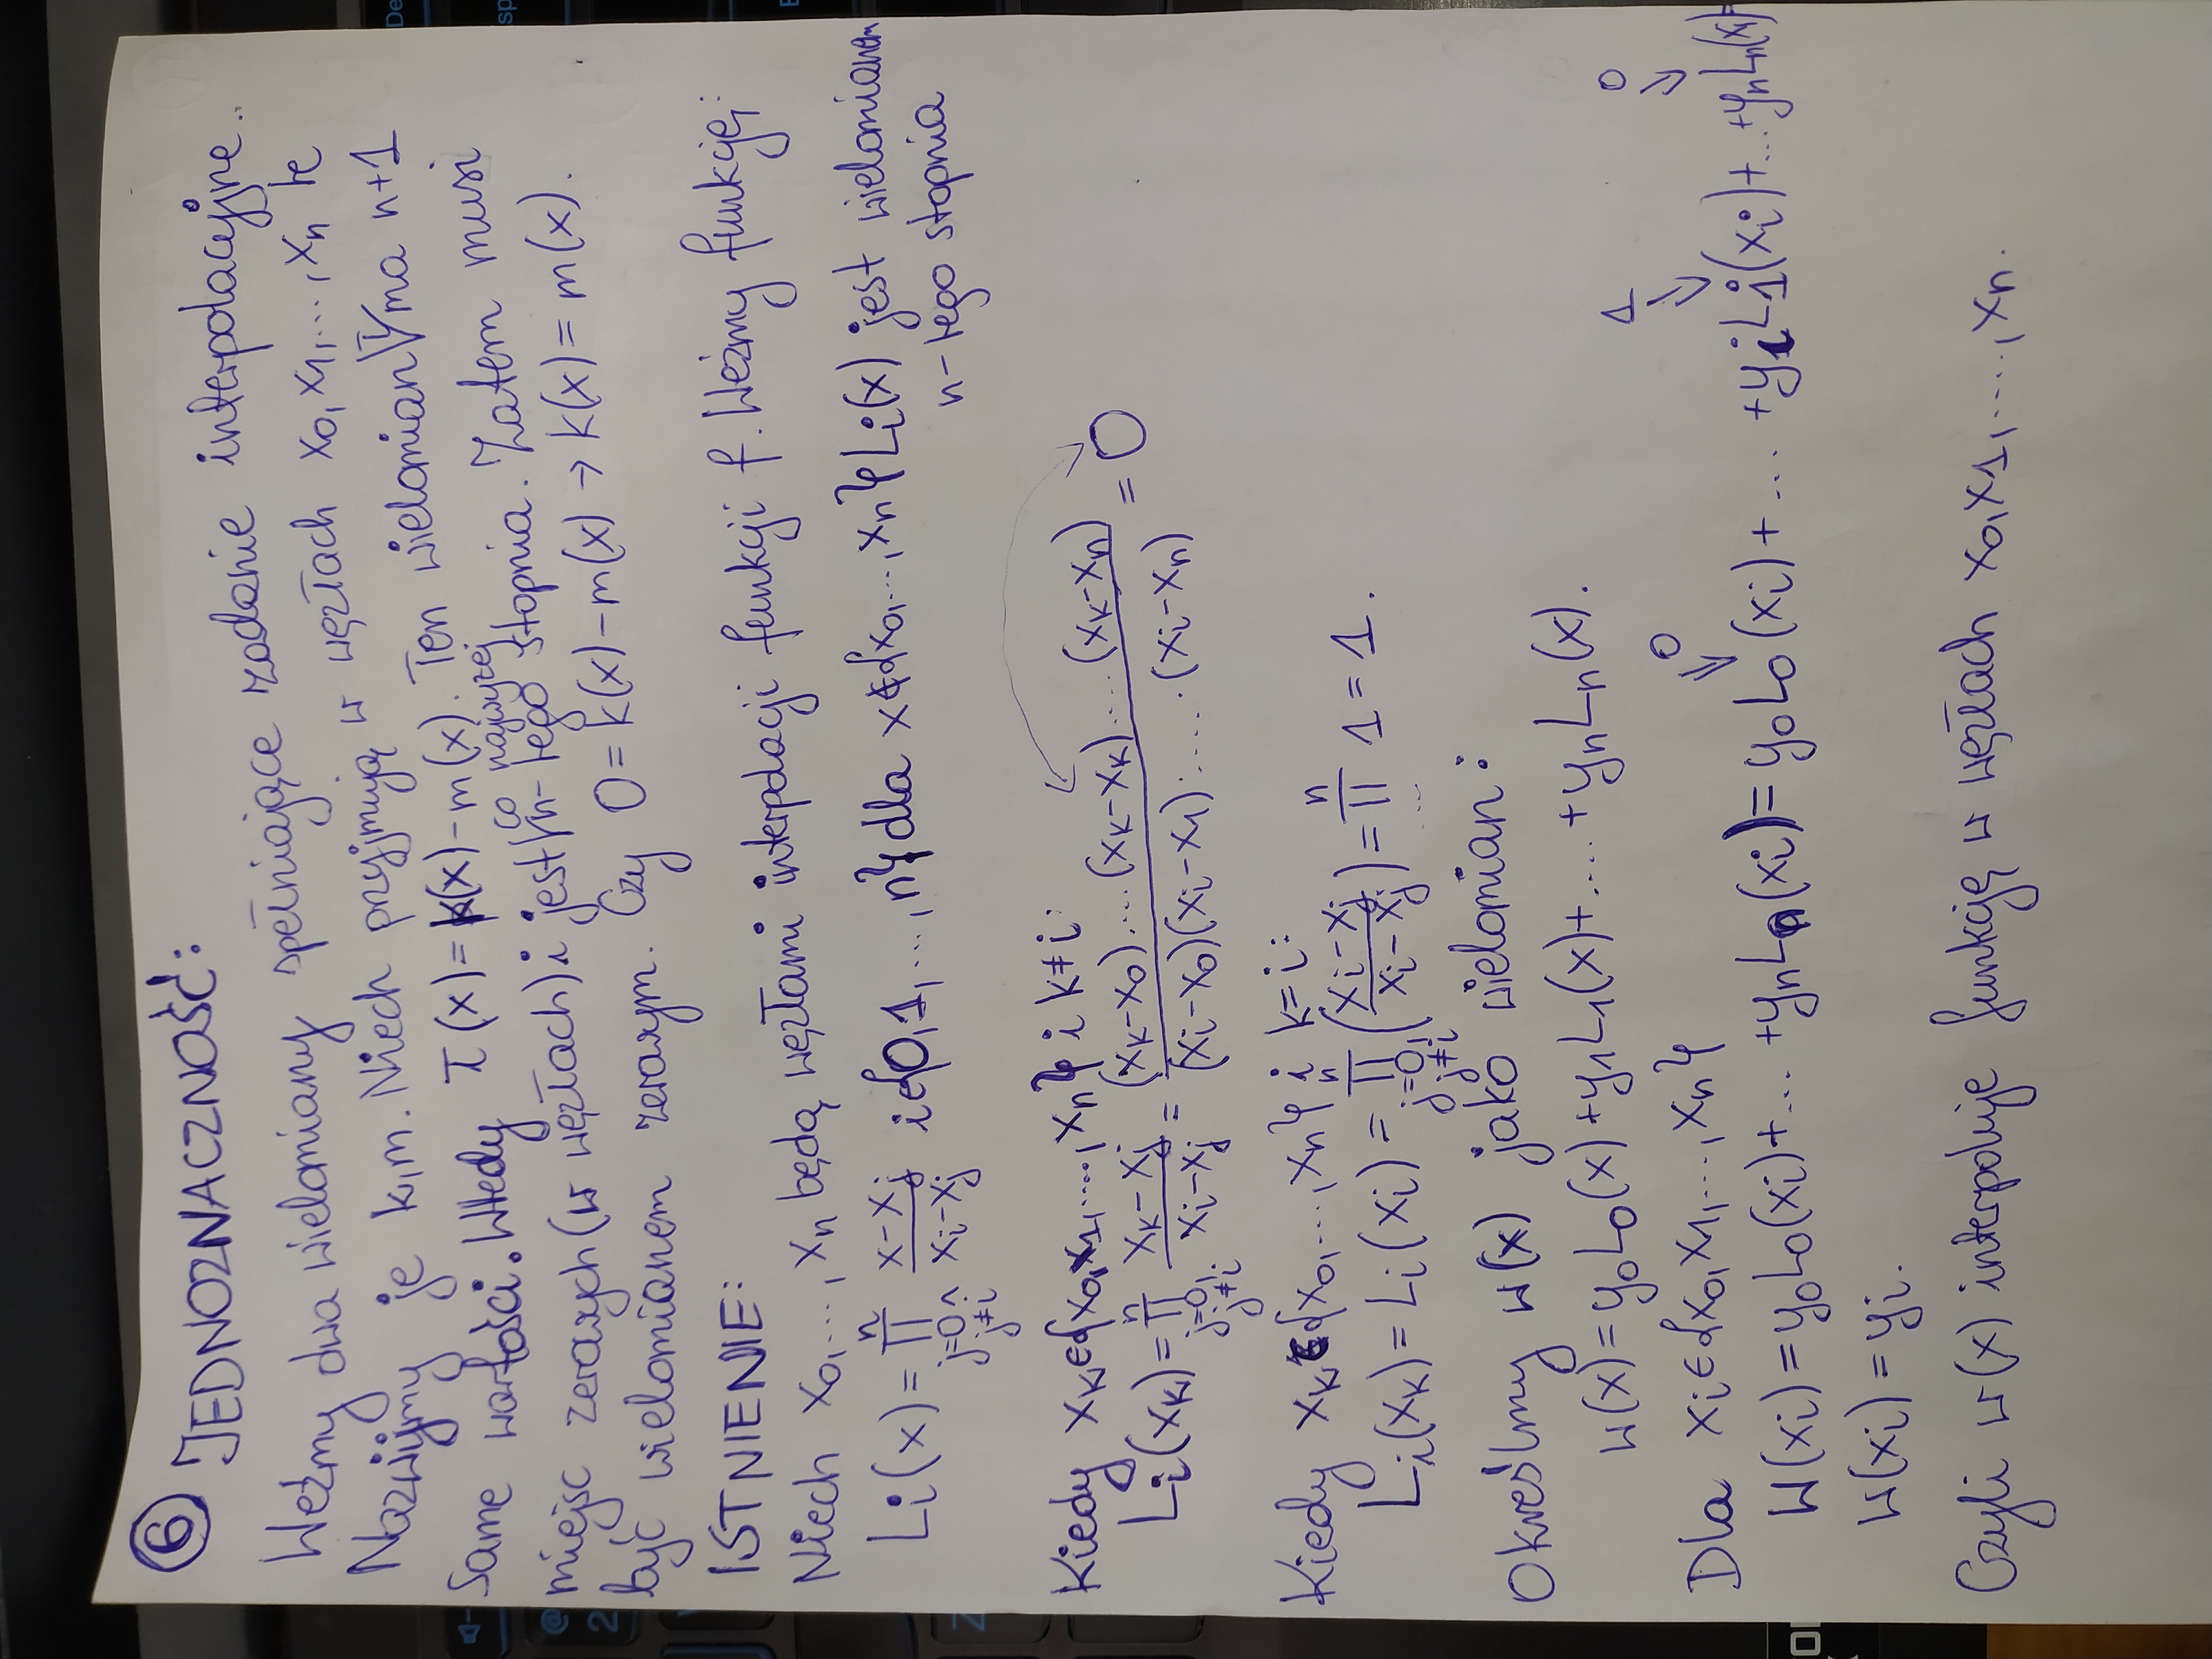 6 JEDNOZNACZNOŚĆ:
Weźmy dwa wielomiany spełniające zadanie interpolacyjne.
Nazwijmy je k,m. Niech przyjmują w węzłach x₀, x₁, ..., xₙ te
same wartości. Wtedy T(x) = k(x) - m(x). Ten wielomian T ma n+1
miejsc zerowych (w węzłach) i jest co najwyżej n-tego stopnia. Zatem musi
być wielomianem zerowym. Czy 0 = k(x) - m(x) → k(x) = m(x).
ISTNIENIE:
Niech x₀, ..., xₙ będą węzłami interpolacji funkcji f. Weźmy funkcję:
Lᵢ(x) = ∏_{j=0, j≠i}^{n} (x-xⱼ)/(xᵢ-xⱼ) i∈{0,1,...,n} dla x∉{x₀,...,xₙ} Lᵢ(x) jest wielomianem
n-tego stopnia
Kiedy xₖ∈{x₀,x₁,....,xₙ} i k≠i:
Lᵢ(xₖ) = ∏_{j=0, j≠i}^{n} (xₖ-xⱼ)/(xᵢ-xⱼ) = ((xₖ-x₀)....(xₖ-xₖ)....(xₖ-xₙ))/((xᵢ-x₀)(xᵢ-x₁)·....·(xᵢ-xₙ)) = 0
Kiedy xₖ∈{x₀,...,xₙ} i k=i:
Lᵢ(xₖ) = Lᵢ(xᵢ) = ∏_{j=0, j≠i}^{n} ((xᵢ-xⱼ)/(xᵢ-xⱼ)) = ∏_{...}^{n} 1 = 1.
Określmy w(x) jako wielomian:
w(x) = y₀L₀(x) + y₁L₁(x) + .... + yₙLₙ(x).
Dla xᵢ∈{x₀,x₁,...,xₙ}
0 1 0
W(xᵢ) = y₀L₀(xᵢ) + ... + yₙLₙ(xᵢ) = y₀L₀(xᵢ) + ... + yᵢLᵢ(xᵢ) + ... + yₙLₙ(xᵢ) =
w(xᵢ) = yᵢ.
Czyli w(x) interpoluje funkcję w węzłach x₀,x₁,....,xₙ.